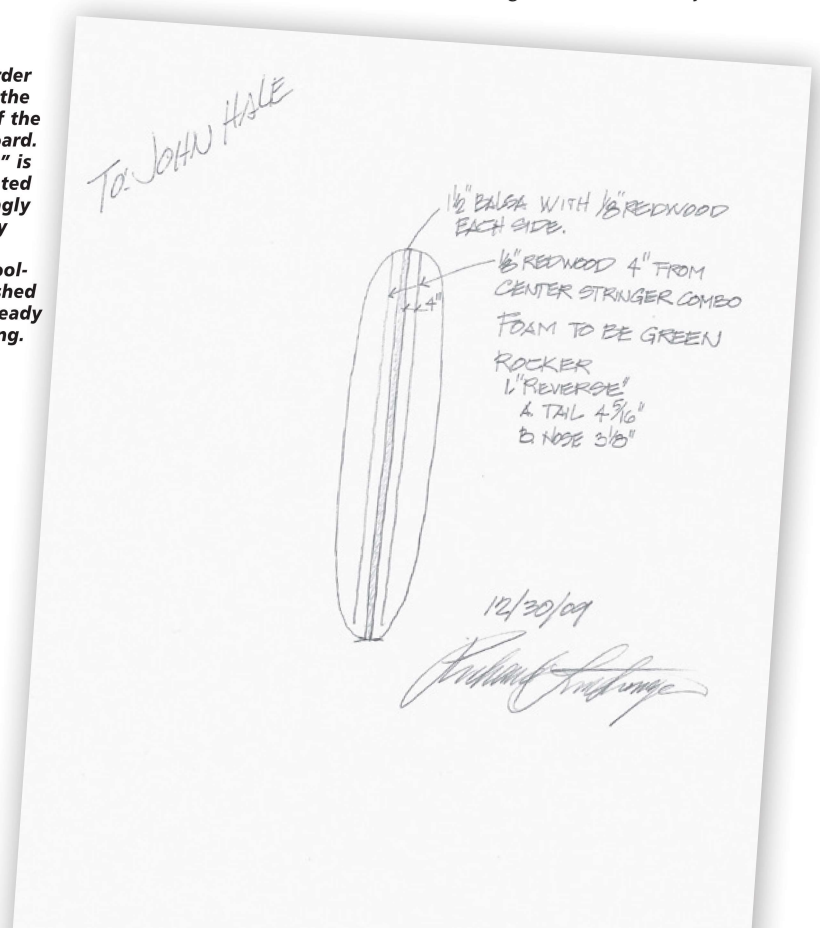 rder
the
f the
oard.
" is
ted
gly
y
ool-
shed
eady
ng.
TO: JOHN HALE
1½" BALSA WITH ⅛" REDWOOD
EACH SIDE.
⅛" REDWOOD 4" FROM
CENTER STRINGER COMBO
4"
FOAM TO BE GREEN
ROCKER
1. "REVERSE"
A. TAIL 4 5/16"
B. NOSE 3⅛"
12/30/09
Richard